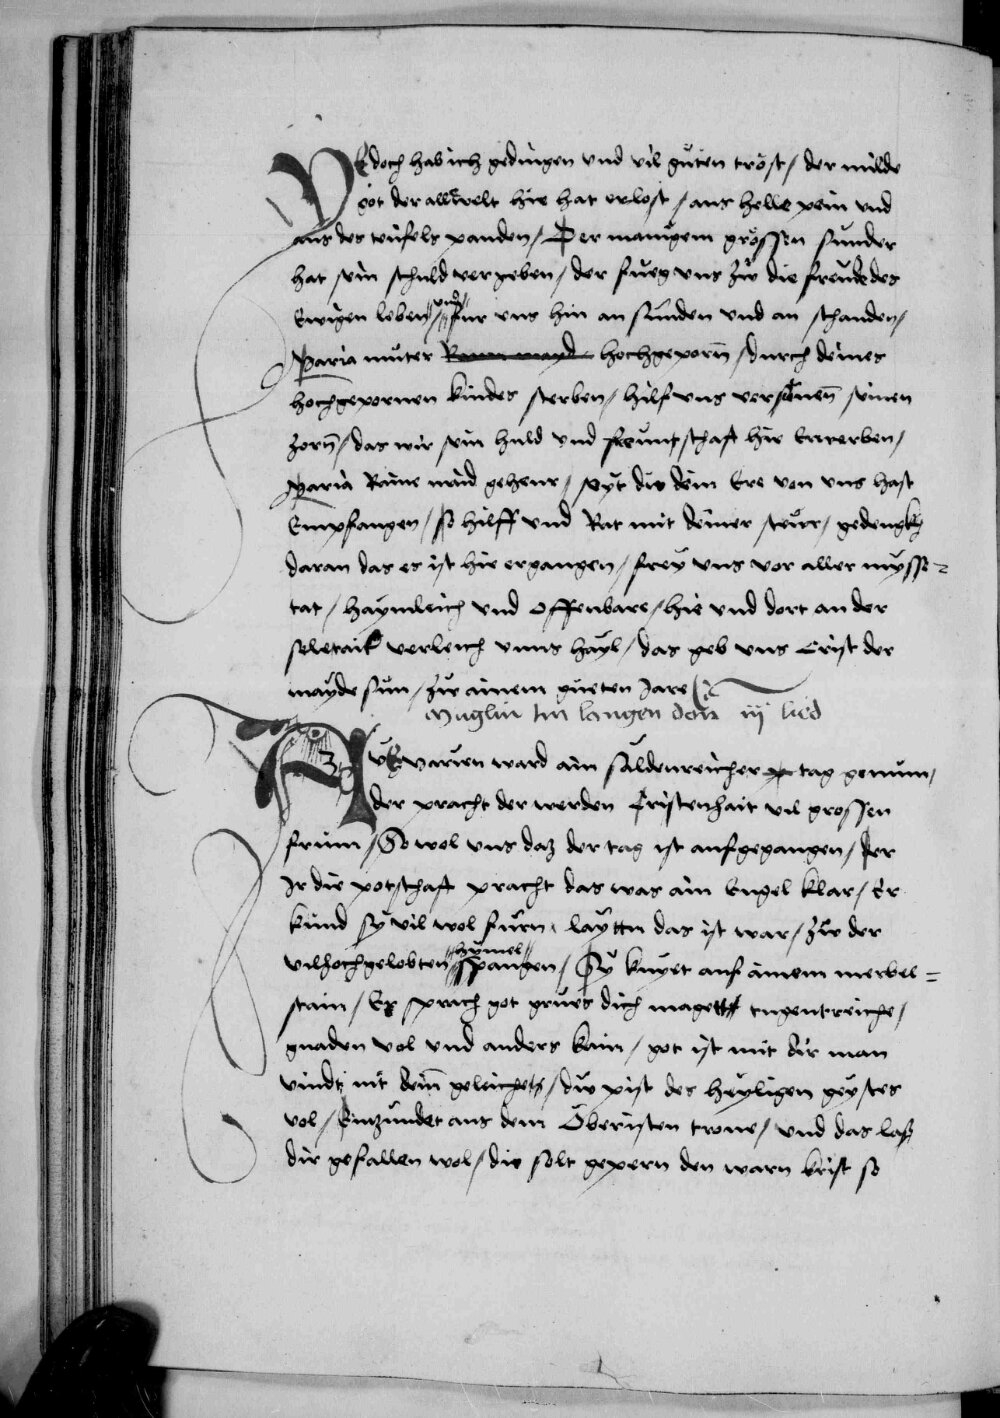 Yedoch hab ich gedingen vnd vil güten tröst / der milde
got der all welt hie hat erlost / aus helle pein vnd
aus des teufels panden / Der manigem grössen sunder
hat sein schuld vergeben / der fueg vns zw die freude des
Ewigen leben / vnd fur vns hin an sunden vnd an schanden /
Maria muter Raine mayd hochgeporn / durch deines
hochgepornen kindes sterben / hilf vns versönen seinen
zorn / das wir sein huld vnd freuntschaft hie Erwerben /
Maria Raine maid geheur / seyt die dein Ere von vns hast
Empfangen / so hilff vnd Rat mit deiner steur / gedengkh
daran das es ist hie ergangen / frey vns vor aller mysse=
tat / haymleich vnd Offenbare / hie vnd dort an der
sele taik verleich vnns hayl / das geb vns Crist der
mayde sun / zw ainem gueten Jare
Muglin im langen don iij lied
der pracht der werden Cristenhait vil grossen
frum / So wol vns daz der tag ist aufgegangen / Der
Ir die potschaft pracht das was ain Engel klar / Er
kund sy vil wol furn laytten das ist war / zw der
vilhochgelobten hymel spangen / Sy knyet auf ainem merbel=
stain / Er sprach got grues dich maget tugentreiche /
gnaden vol vnd anders kain / got ist mit dir man
vindt nit dein geleiche / dw pist des heyligen geystes
vol / Enzundet aus dem Öberisten trone / vnd das laß
dir gefallen wol / die solt gepern den warn krist so